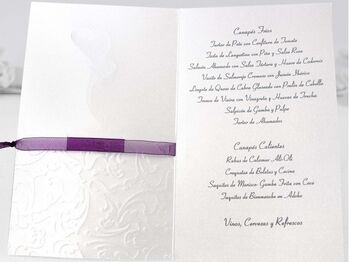 Canapés Fríos
Tartar de Pato con Confitura de Tomate
Tosta de Langostino con Piña y Salsa Rosa
Salmón Ahumado con Salsa Tártara y Huevas de Codorniz
Vasito de Salmorejo Cremoso con Jamón Ibérico
Lingote de Queso de Cabra Glaseado con Praliné de Cabello
Tosca de Vieira con Vinagreta y Huevas de Trucha
Salpicón de Gamba y Pulpo
Tartar de Ahumados
Canapés Calientes
Rabas de Calamar Ali-Oli
Croquetas de Boletus y Cecina
Saquitos de Marisco Gamba Frita con Coco
Taquitos de Bienmesabe en Adobo
Vinos, Cervezas y Refrescos